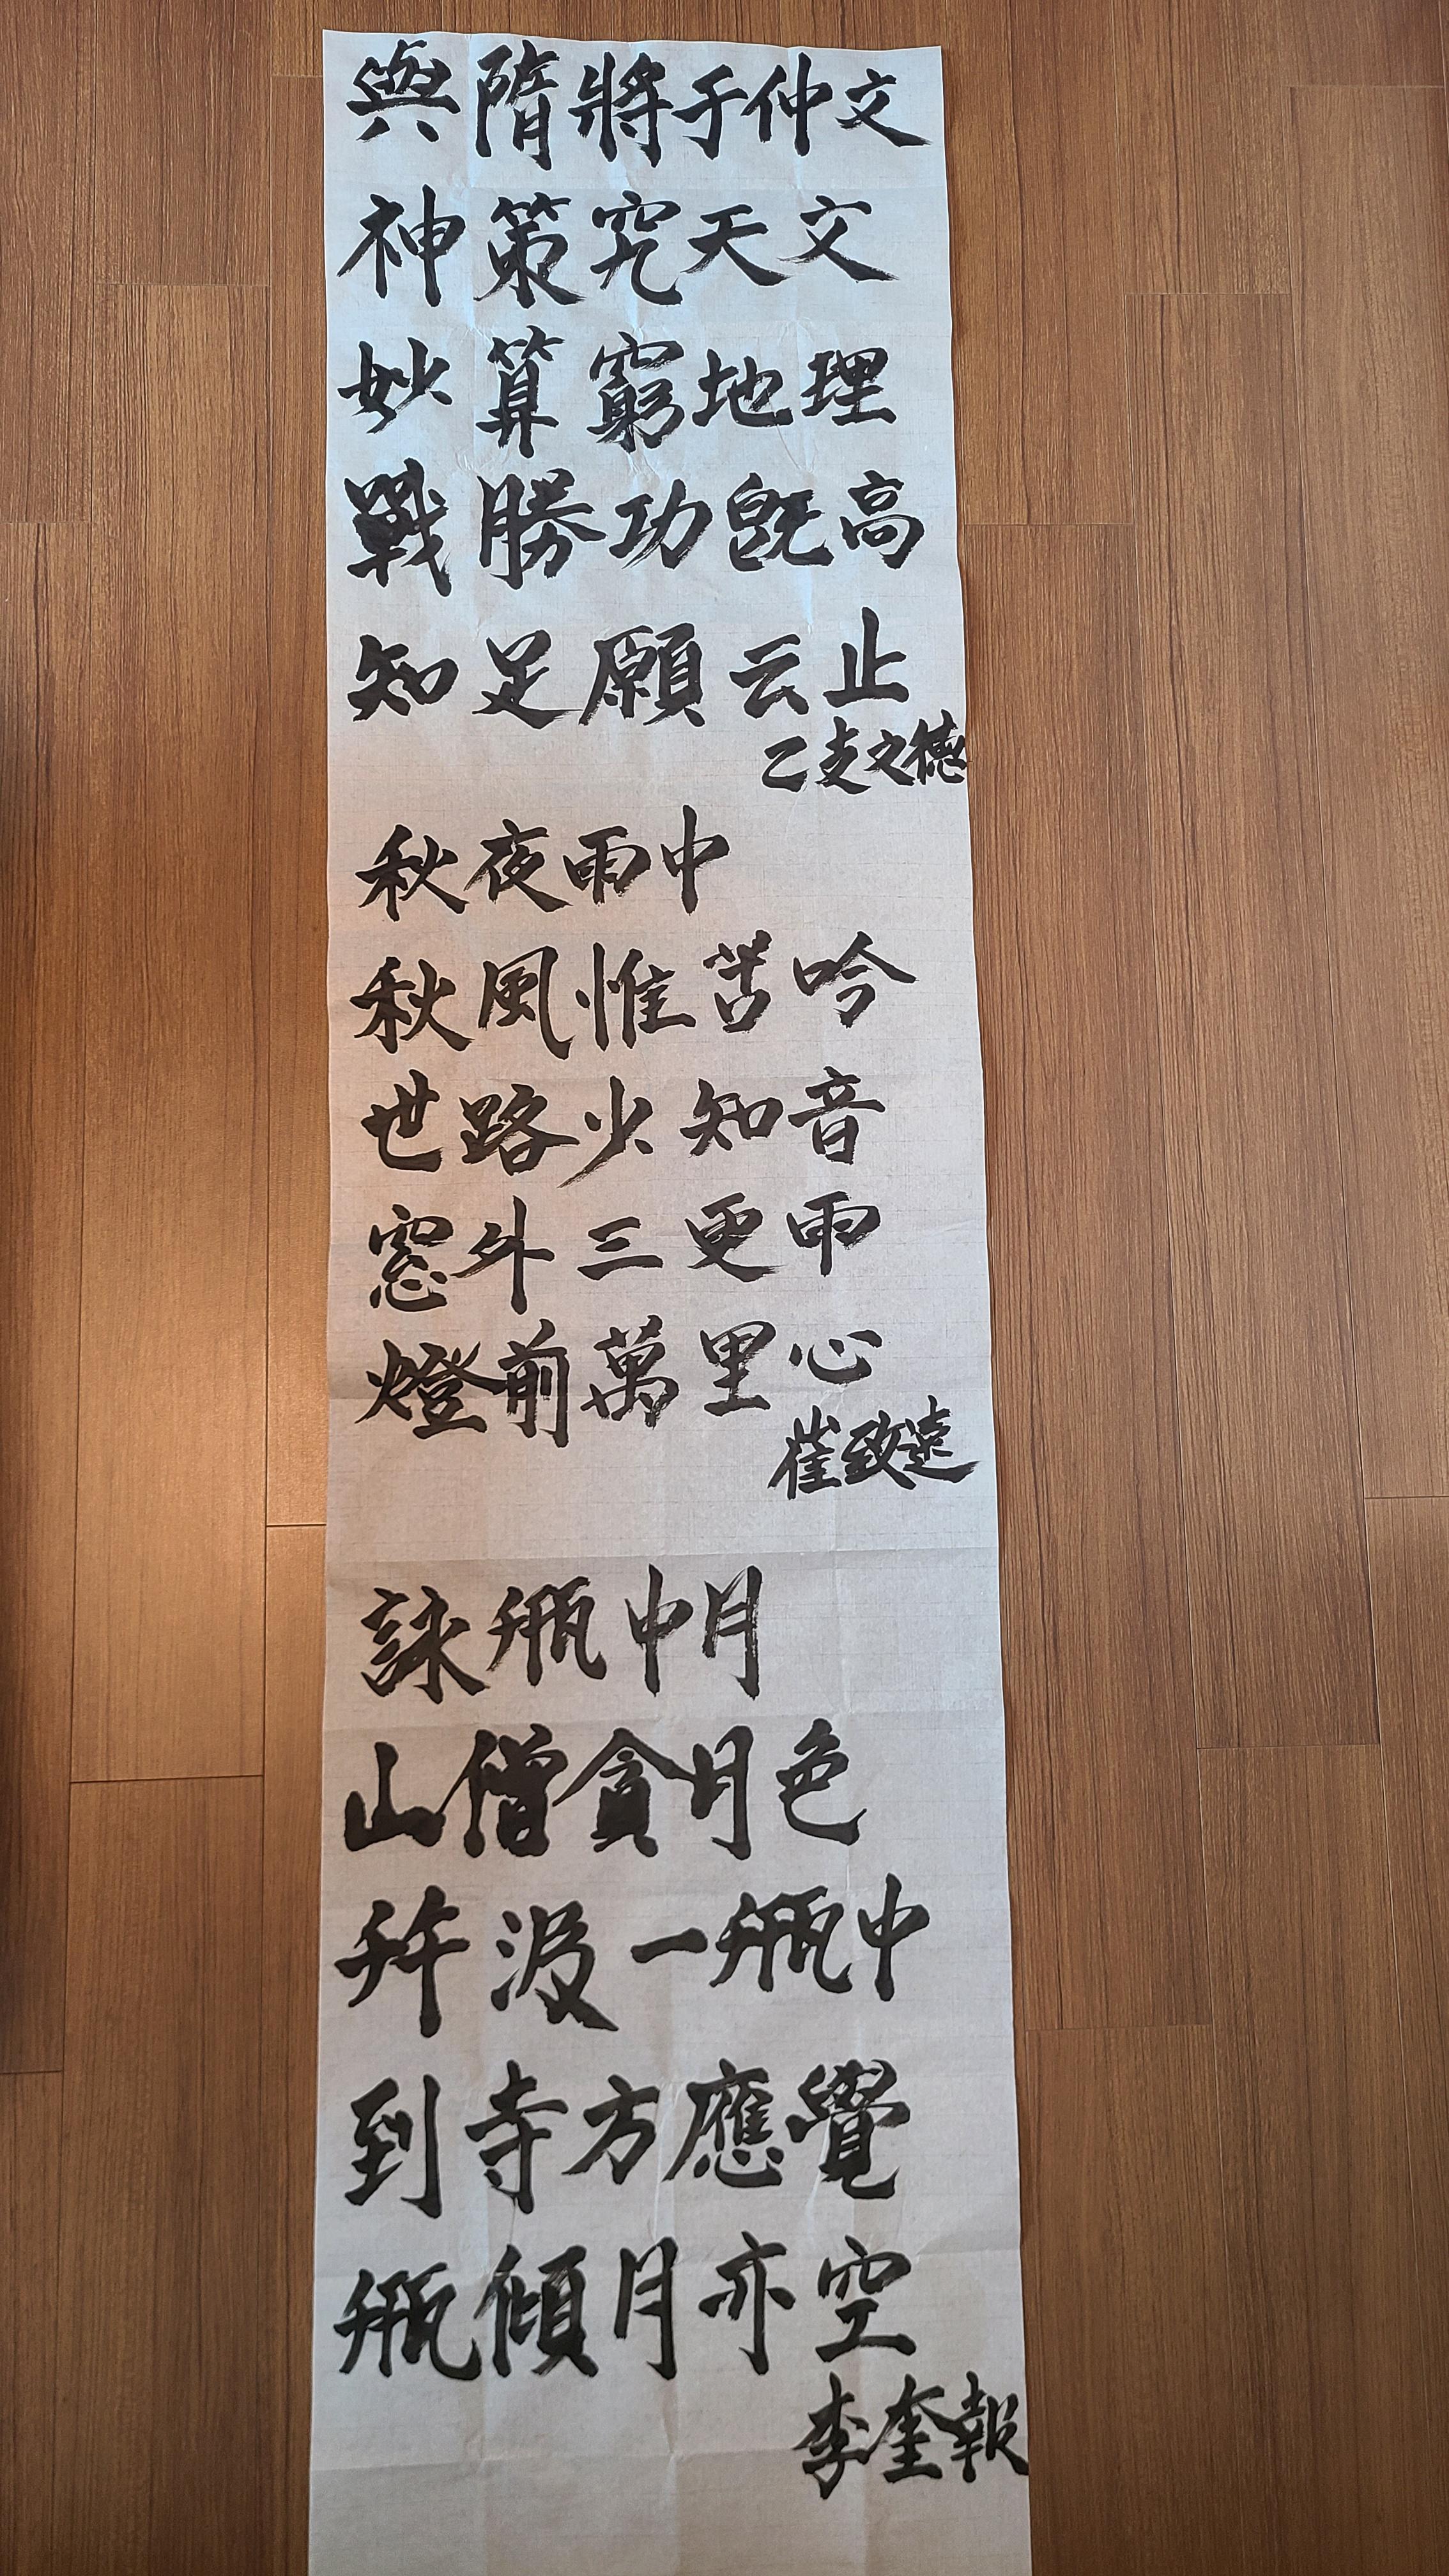 與隋將于仲文
神策究天文
妙算窮地理
戰勝功旣高
知足願云止
乙支文德
秋夜雨中
秋風惟苦吟
世路少知音
窓外三更雨
燈前萬里心
崔致遠
詠甁中月
山僧貪月色
幷汲一甁中
到寺方應覺
甁傾月亦空
李奎報